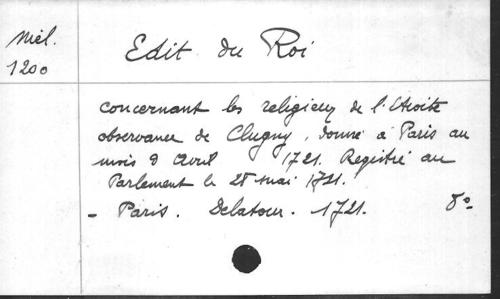 Mél.
1200
Edit du Roi
concernant les religieux de l'étroite
observance de Clugny, donné à Paris au
mois d'Avril 1721. Registré au
Parlement le 28 mai 1721.
- Paris. Delatour. 1721. 8º